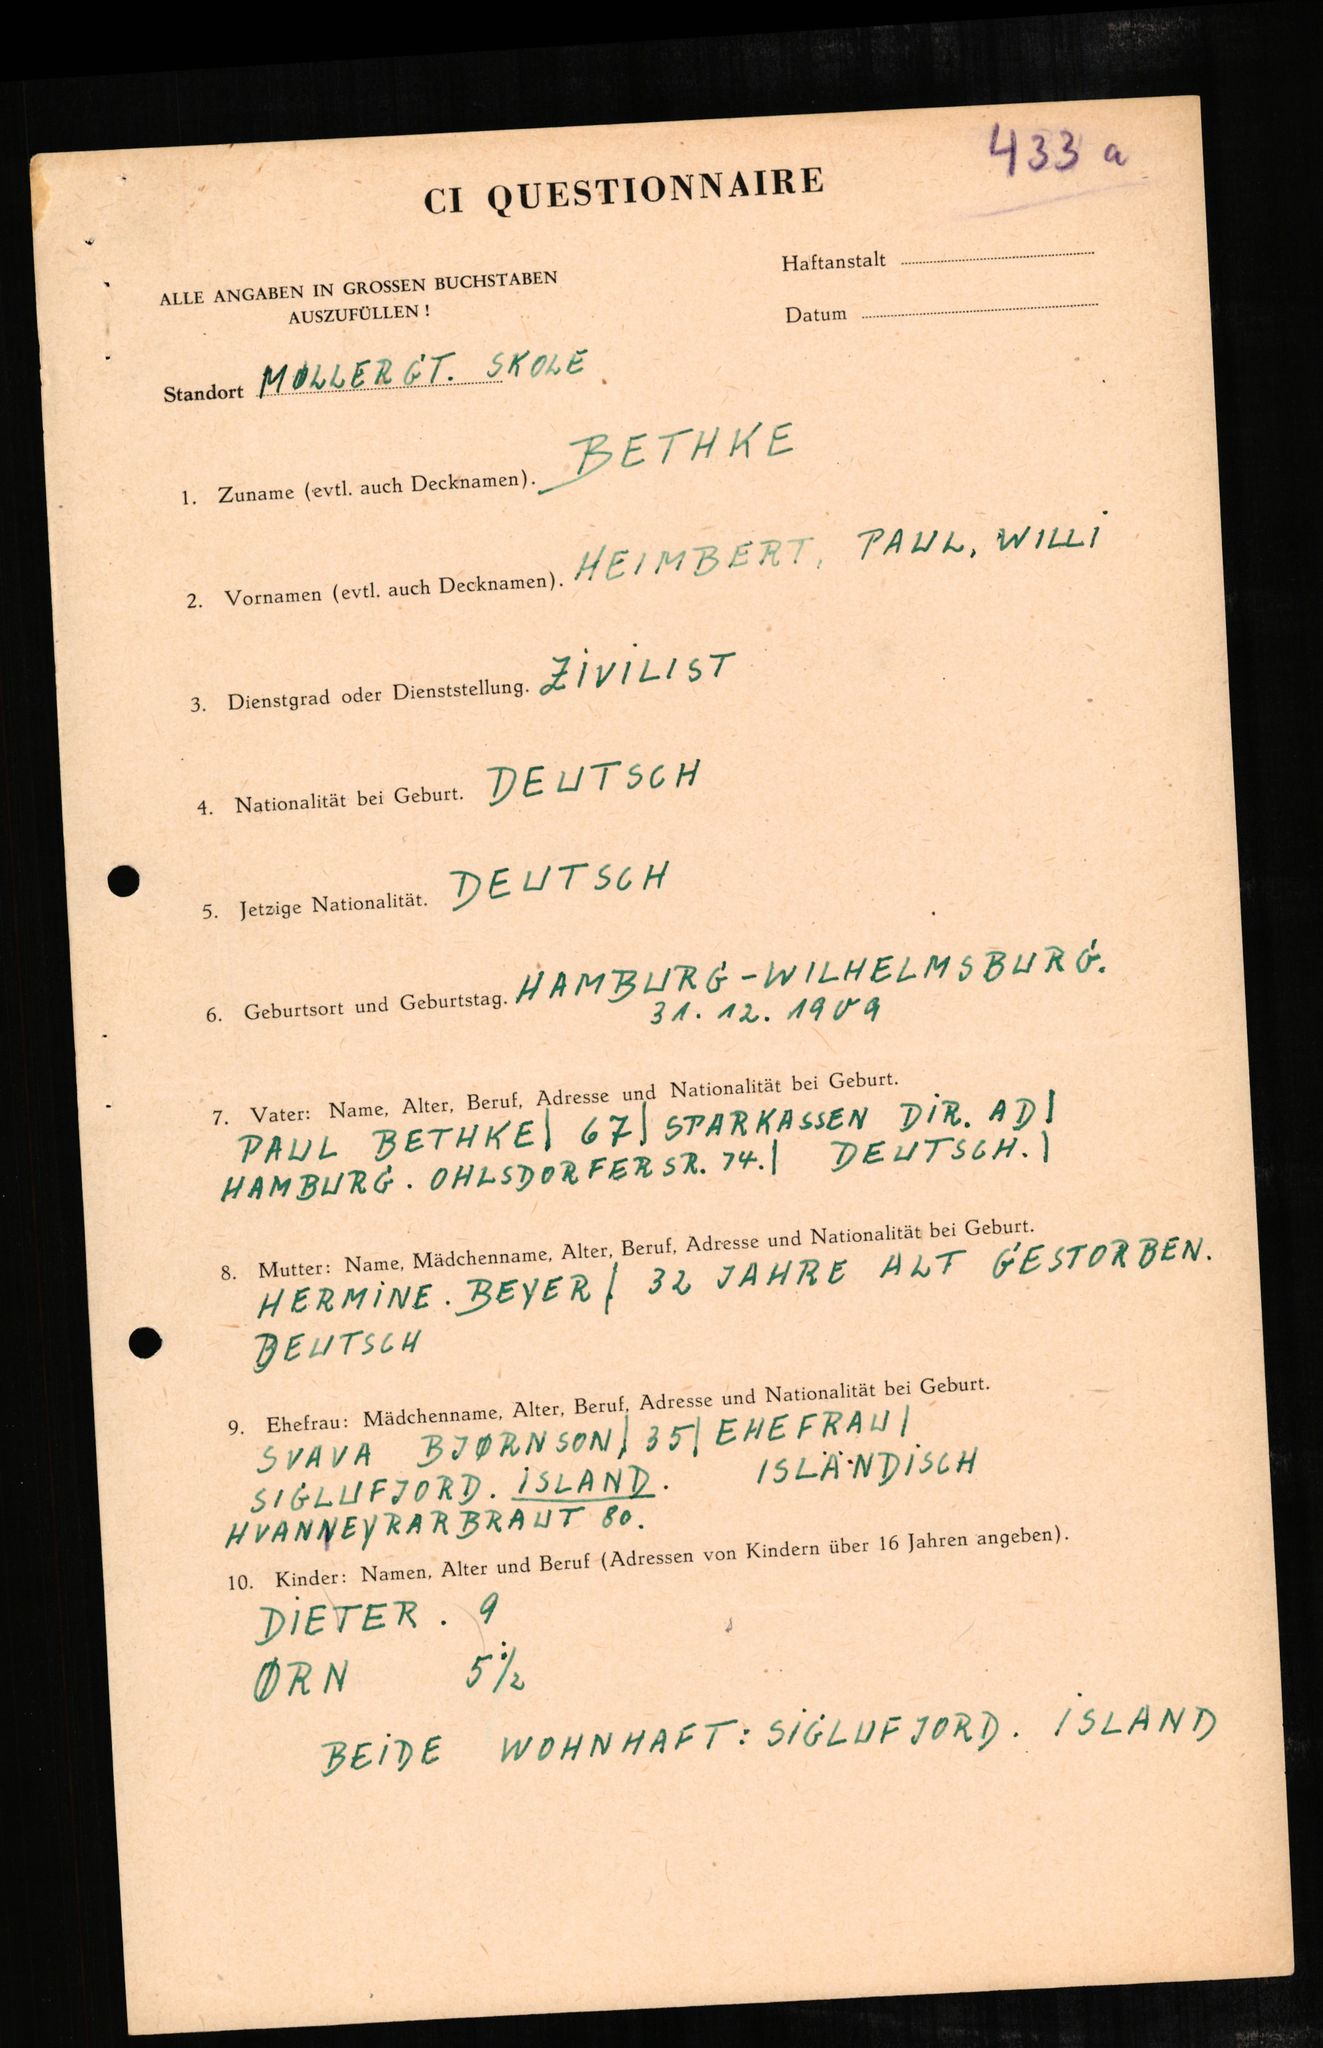 433 a
CI QUESTIONNAIRE
Haftanstalt
ALLE ANGABEN IN GROSSEN BUCHSTABEN
AUSZUFÜLLEN !
Datum
Standort MØLLERGT. SKOLE
1. Zuname (evtl. auch Decknamen). BETHKE
2. Vornamen (evtl. auch Decknamen). HEIMBERT, PAUL, WILLI
3. Dienstgrad oder Dienststellung. ZIVILIST
4. Nationalität bei Geburt. DEUTSCH
5. Jetzige Nationalität. DEUTSCH
6. Geburtsort und Geburtstag. HAMBURG-WILHELMSBURG.
31. 12. 1909
7. Vater: Name, Alter, Beruf, Adresse und Nationalität bei Geburt.
PAUL BETHKE | 67 | SPARKASSEN DIR. AD |
HAMBURG. OHLSDORFERSR. 74. | DEUTSCH. |
8. Mutter: Name, Mädchenname, Alter, Beruf, Adresse und Nationalität bei Geburt.
HERMINE. BEYER | 32 JAHRE ALT GESTORBEN.
DEUTSCH
9. Ehefrau: Mädchenname, Alter, Beruf, Adresse und Nationalität bei Geburt.
SVAVA BJØRNSON | 35 | EHEFRAU |
SIGLUFJORD. ISLAND. ISLÄNDISCH
HVANNEYRARBRAUT 80.
10. Kinder: Namen, Alter und Beruf (Adressen von Kindern über 16 Jahren angeben).
DIETER. 9
ØRN 5 1/2
BEIDE WOHNHAFT: SIGLUFJORD. ISLAND